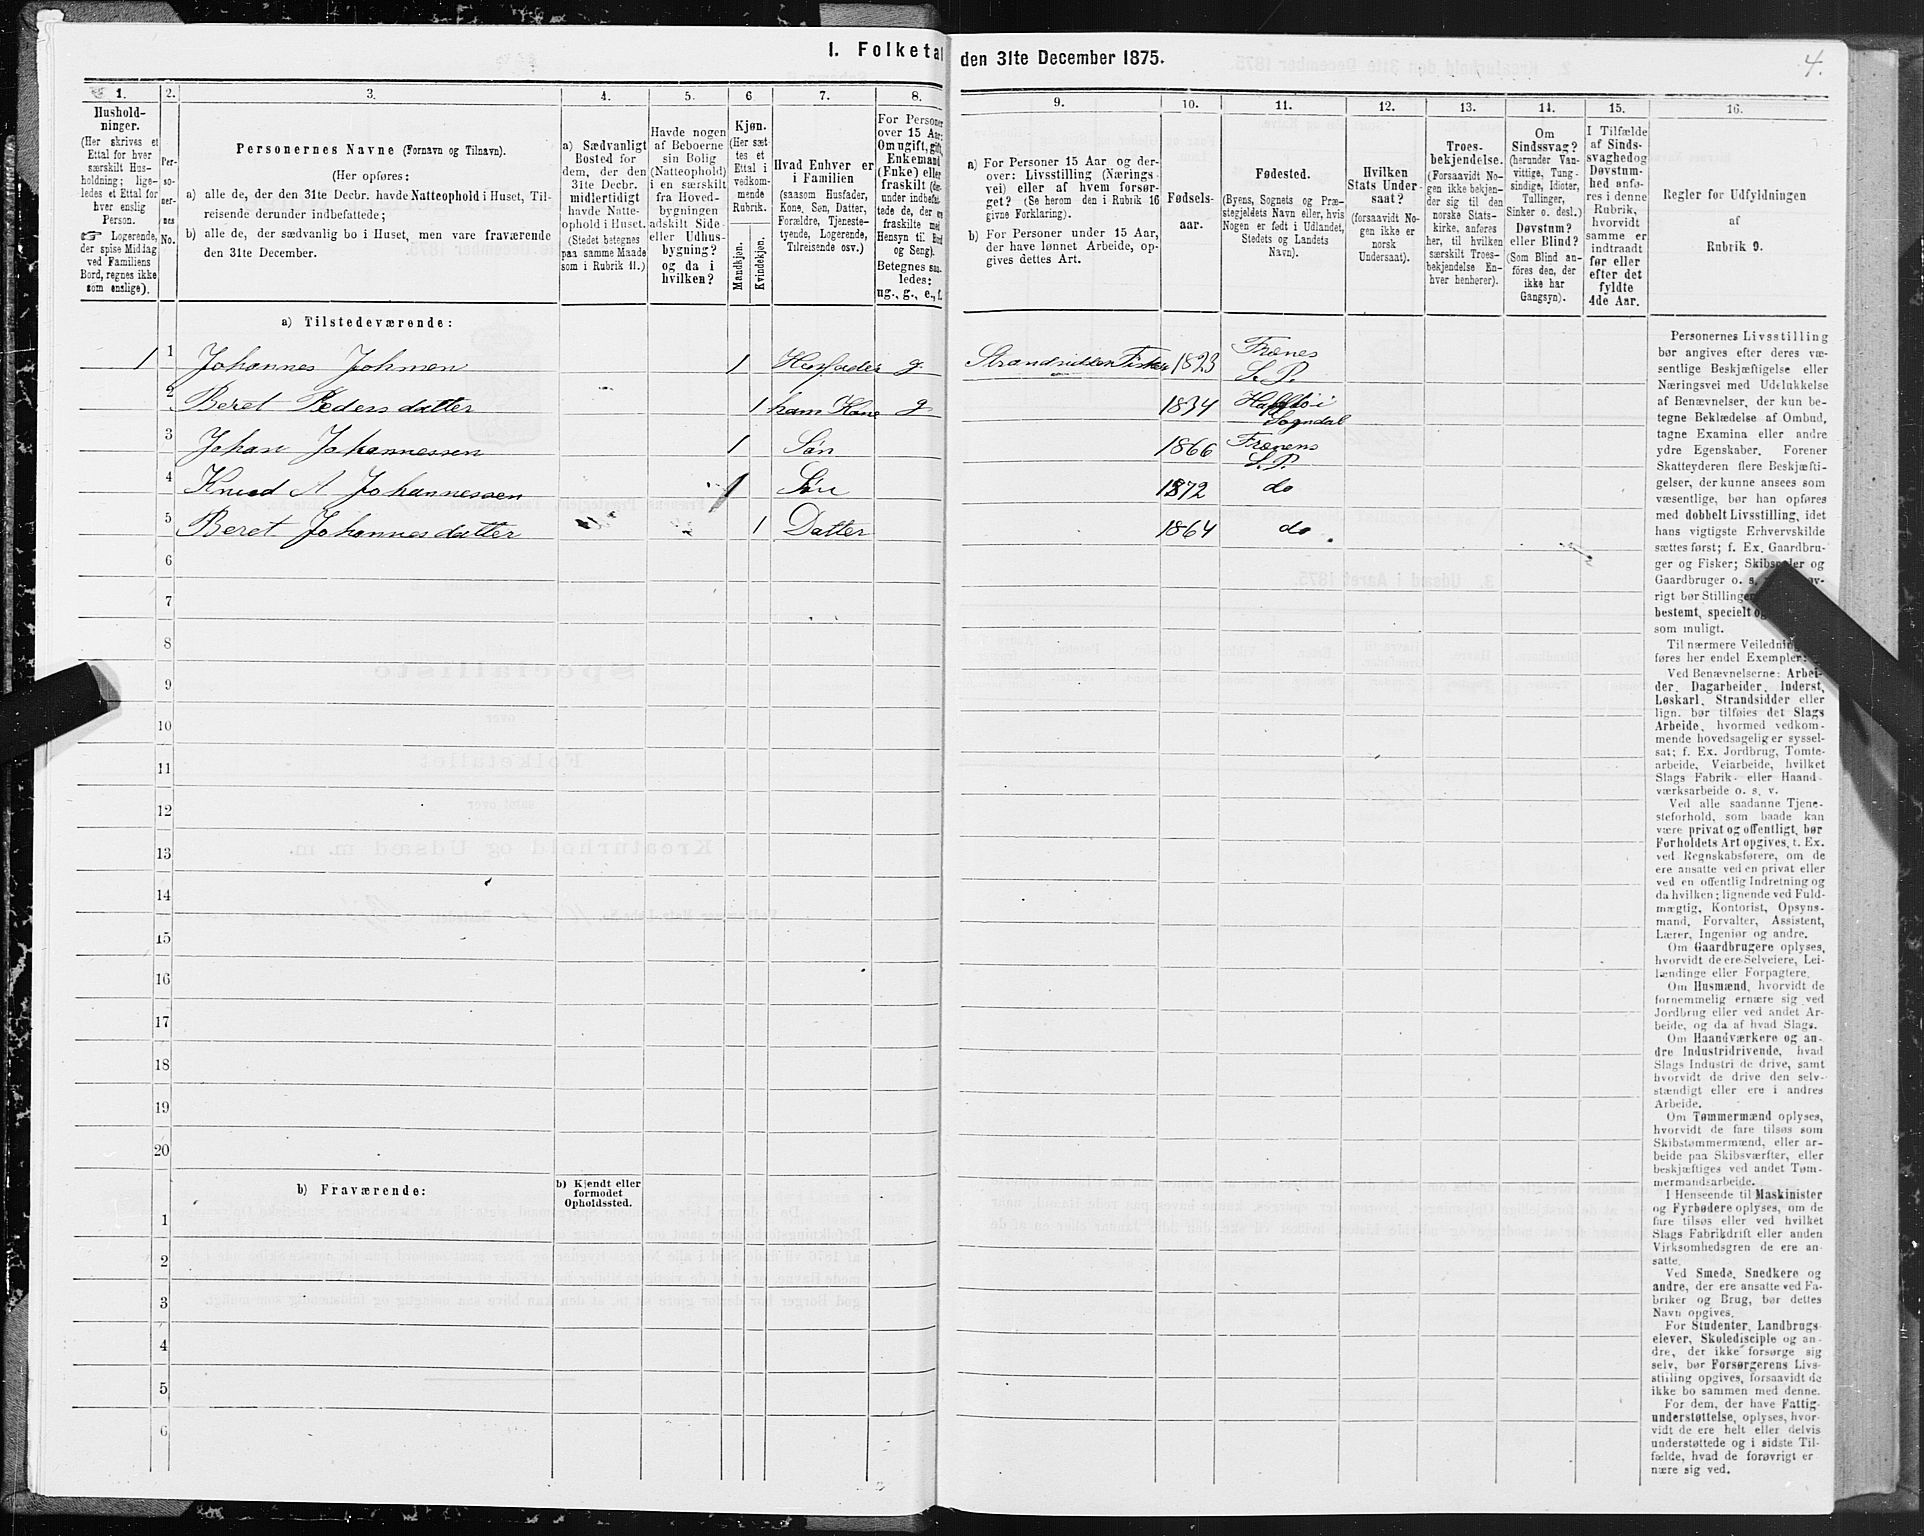 1. Folketal den 31te December 1875.
4.
1.
Hushold-
ninger.
(Her skrives et
Ettal for hver
særskilt Hus-
holdning; lige-
ledes et Ettal for
hver enslig
Person.
☞ Logerende,
der spise Middag
ved Familiens
Bord, regnes ikke
som enslige).
2.
Per-
so-
ner-
nes
No.
3.
Personernes Navne (Fornavn og Tilnavn).
(Her opføres:
a) alle de, der den 31te Decbr. havde Natteophold i Huset, Til-
reisende derunder indbefattede;
b) alle de, der sædvanlig bo i Huset, men vare fraværende
den 31te December.
4.
a) Sædvanligt
Bosted for
dem, der den
31te Decbr.
midlertidigt
havde Natte-
ophold i Huset.
(Stedet betegnes
paa samme Maade
som i Rubrik 11.)
5.
Havde nogen
af Beboerne
sin Bolig
(Natteophold)
i en særskilt
fra Hoved-
bygningen
adskilt Side-
eller Udhus-
bygning?
og da i
hvilken?
6
Kjøn.
(Her sæt-
tes et
Ettal i
vedkom-
mende
Rubrik.
Mandkjøn.
Kvindekjøn.
7.
Hvad Enhver er
i Familien
(saasom Husfader,
Kone, Søn, Datter,
Forældre, Tjeneste-
tyende, Logerende,
Tilreisende osv.)
8.
For Personer
over 15 Aar:
Om ugift, gift,
Enkemand
(Enke) eller
fraskilt (der-
under indbefat-
tede de, der ere
fraskilte med
Hensyn til Bord
og Seng).
Betegnes saa-
ledes:
ug., g., e., f.
9.
a) For Personer 15 Aar og der-
over: Livsstilling (Nærings-
vei) eller af hvem forsør-
get? (Se herom den i Rubrik 16
givne Forklaring).
b) For Personer under 15 Aar,
der have lønnet Arbeide, op-
gives dettes Art.
10.
Fødsels-
aar.
11.
Fødested.
(Byens, Sognets og Præ-
stegjeldets Navn eller, hvis
Nogen er født i Udlandet,
Stedets og Landets
Navn).
12.
Hvilken
Stats Under-
saat?
(forsaavidt No-
gen ikke er
norsk
Undersaat).
13.
Troes-
bekjendelse.
(Forsaavidt No-
gen ikke bekjen-
der sig til den
norske Stats-
kirke, anføres
her, til hvilken
særskilt Troes-
bekjendelse En-
hver henhører).
14.
Om
Sindssvag?
(herunder Van-
vittige, Tung-
sindige, Idioter,
Tullinger,
Sinker o. desl.)
Døvstum?
eller Blind?
(Som Blind an-
føres den, der
ikke har
Gangsyn).
15.
I Tilfælde
af Sinds-
svaghed og
Døvstum-
hed anfø-
res i denne
Rubrik,
hvorvidt
samme er
indtraadt
før eller
efter det
fyldte
4de Aar.
16.
Regler for Udfyldningen
af
Rubrik 9.
a) Tilstedeværende:
1 1 Johannes Johnsen 1 Husfader g. Strandsidder Fisker 1823 Frænes S. P.
2 Beret Pedersdatter 1 hans Kone g 1834 Sogndal
3 Johan Johannessen 1 Søn 1866 Frænens S. P.
4 Knud A Johannessen 1 Søn 1872 do
5 Beret Johannesdatter 1 Datter 1864 do
6
7
8
9
10
11
12
13
14
15
16
17
18
19
20
b) Fraværende:
b) Kjendt eller
formodet
Opholdssted.
1
2
3
4
5
6
Personernes Livsstilling
bør angives efter deres væ-
sentlige Beskjæftigelse eller
Næringsvei med Udelukkelse
af Benævnelser, der kun be-
tegne Beklædelse af Ombud,
tagne Examina eller andre
ydre Egenskaber. Forener
Skatteyderen flere Beskjæfti-
gelser, der kunne ansees som
væsentlige, bør han opføres
med dobbelt Livsstilling, idet
hans vigtigste Erhvervskilde
sættes først; f. Ex. Gaardbru-
ger og Fisker; Skibsreder og
Gaardbruger o. s.
rigt bør Stillingen
bestemt, specielt og
som muligt.
Til nærmere Veiledning
føres her endel Exempler:
Ved Benævnelserne: Arbei-
der, Dagarbeider, Inderst,
Løskarl, Strandsidder eller
lign. bør tilføies det Slags
Arbeide, hvormed vedkom-
mende hovedsagelig er syssel-
sat; f. Ex. Jordbrug, Tomte-
arbeide, Veiarbeide, hvilket
Slags Fabrik- eller Haand-
værksarbeide o. s. v.
Ved alle saadanne Tjene-
steforhold, som baade kan
være privat og offentligt, bør
Forholdets Art opgives, f. Ex.
ved Regnskabsførere, om de
ere ansatte ved en privat eller
ved en offentlig Indretning og
da hvilken; lignende ved Fuld-
mægtig, Kontorist, Opsyns-
mand, Forvalter, Assistent,
Lærer, Ingeniør og andre.
Om Gaardbrugere oplyses,
hvorvidt de ere Selveiere, Lei-
lændinge eller Forpagtere.
Om Husmænd, hvorvidt de
fornemmelig ernære sig ved
Jordbrug eller ved andet Ar-
beide, og da af hvad Slags.
Om Haandværkere og an-
dre Industridrivende, hvad
Slags Industri de drive, samt
hvorvidt de drive den selv-
stændigt eller ere i andres
Arbeide.
Om Tømmermænd oplyses,
hvorvidt de fare tilsøs som
Skibstømmermænd, eller ar-
beide paa Skibsværfter, eller
beskjæftiges ved andet Tøm-
mermandsarbeide.
I Henseende til Maskinister
og Fyrbødere oplyses, om de
fare tilsøs eller ved hvilket
Slags Fabrikdrift eller anden
Virksomhedsgren de ere an-
satte.
Ved Smede, Snedkere og
andre, der ere ansatte ved Fa-
briker og Brug, bør dettes
Navn opgives.
For Studenter, Landbrugs-
elever, Skoledisciple og an-
dre, der ikke forsørge sig
selv, bør Forsørgerens Livs-
stilling opgives, forsaavidt de
ikke bo sammen med denne.
For dem, der have Fattig-
understøttelse, oplyses, hvor-
vidt de ere helt eller delvis
understøttede og i sidste Til-
fælde, hvad de forøvrigt er-
nære sig ved.